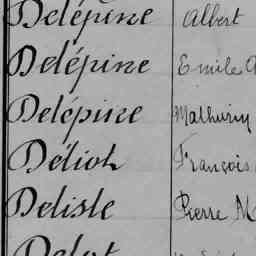 Delépine Albert
Delépine Emile
Delépine Mathurin
Délioh François
Delisle Pierre M